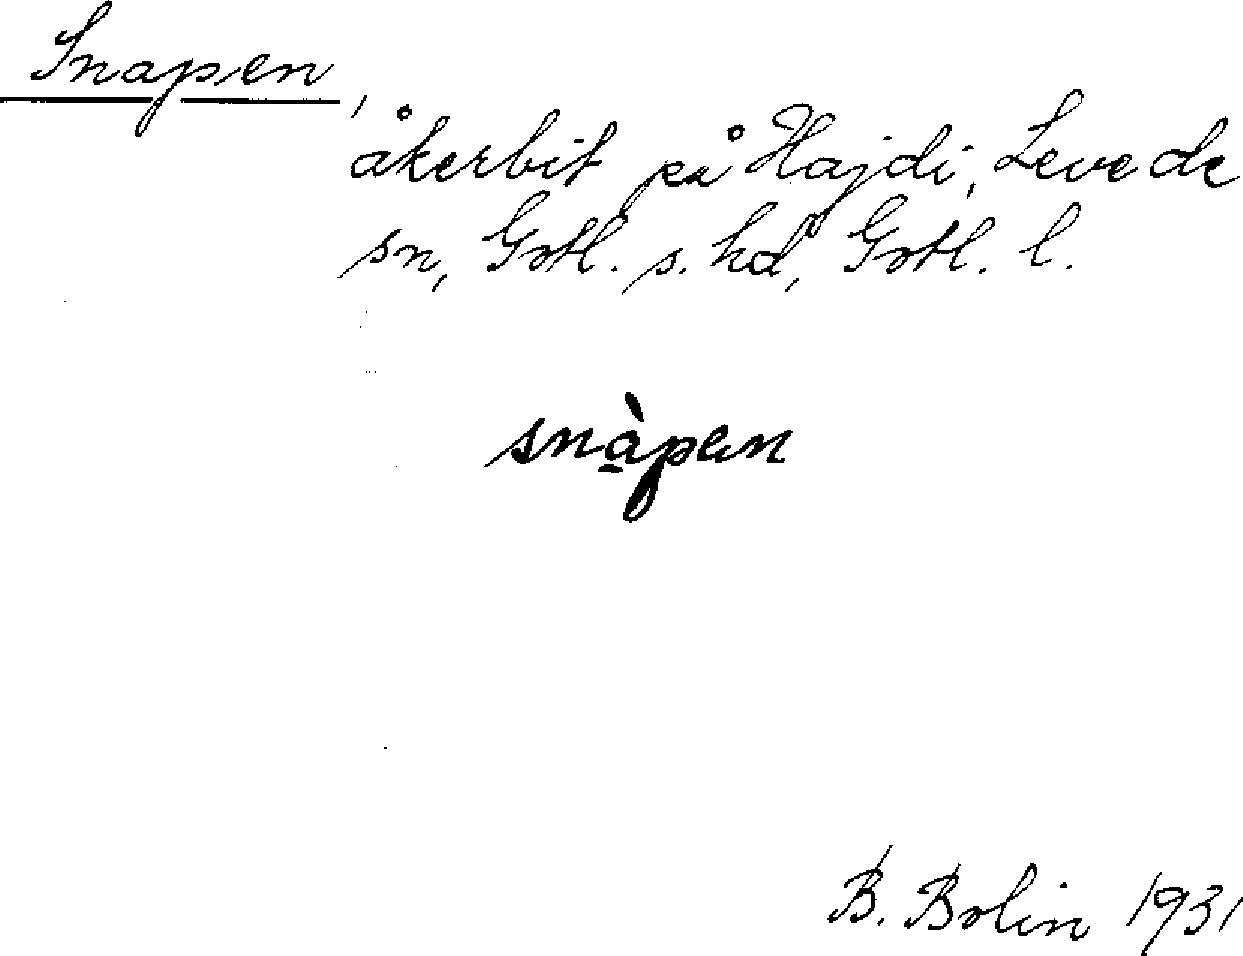 Snapen,
åkerbit på Hajdi, Levede
sn, Gotl. s. hd, Gotl. l.
snàpen
B. Bolin 1931